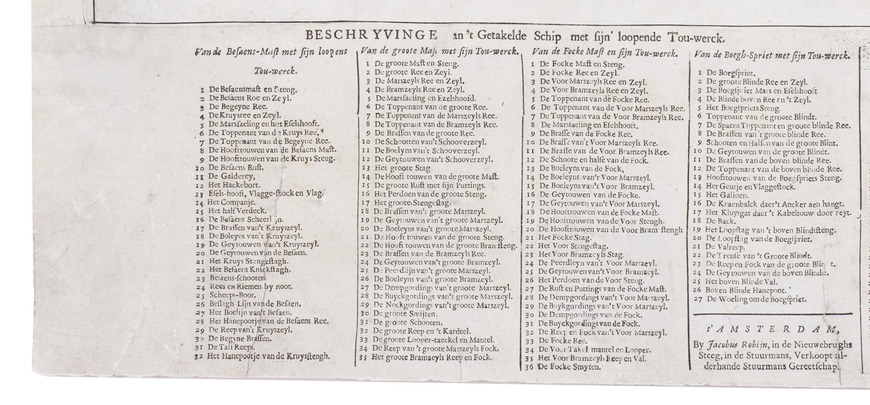 BESCHRYVINGE an't Getakelde Schip met sijn' loopende Tou-werck.
Van de Besaens-Mast met sijn loopent
Tou-werck.
1 De Besaensmast en Steng.
2 De Besaens Roe en Zeyl.
3 De Begyne Ree.
4 De Kruysree en Zeyl.
5 De Marsseling en het Eselshooft.
6 De Toppenant van de Kruys Ree.
7 De Toppenant van de Begyne Ree.
8 De Hooftrouwen van de Besaens Mast.
9 De Hooftrouwen van de Kruys Steng.
10 De Besaens Rust.
11 De Galderey.
12 Het Hackebort.
13 Esels-hooft, Vlagge-stock en Vlag.
14 Het Companje.
15 Het half Verdeck.
16 De Besaens Scheerlijn.
17 De Brassen van't Kruyszeyl.
18 De Boleyns van't Kruyszeyl.
19 De Geytouwen van't Kruyszeyl.
20 De Geytouwen van de Besaen.
21 Het Kruys Stengestagh.
22 Het Besaens Knickstagh.
23 Besaens-schooten.
24 Rees en Riemen by noot.
25 Scherps-Boot.
26 Beslagh-Lijn van de Besaen.
27 Het Boelijn van't Besaen.
28 Het Hanepootje van de Besaens Ree.
29 De Reep van't Kruyszeyl.
30 De Begyne Brassen.
31 De Tali Reeps.
32 Het Hanepootje van de Kruysstengh.
Van de groote Mast met sijn Tou-werck.
1 De groote Mast en Steng.
2 De groote Ree en Zeyl.
3 De Marszeyls Ree en Zeyl.
4 De Bramzeyls Ree en Zeyl.
5 De Marsseling en Ezelshoofd.
6 De Toppenant van de groote Ree.
7 De Toppenant van de Marszeyls Ree.
8 De Toppenant van de Bramzeyls Ree.
9 De Brassen van de groote Ree.
10 De Schooten van't Schooverzeyl.
11 De Boelyns van't Schooverzeyl.
12 De Geytouwen van't Schooverzeyl.
13 Het groote Stag
14 De Hooft touwen van de groote Mast.
15 De groote Rust met sijn Puttings.
16 Het Perdoen van de groote Steng.
17 Het groote-Stengestag.
18 De Brassen van't groote Marszeyl.
19 De Geytouwen van't groote Marszeyl.
20 De Boeleyns van't groote Marszeyl.
21 De Hooft touwen van de groote Steng.
22 De Hooft touwen van de groote Bramsteng.
23 De Brassen van de Bramzeyls Ree.
24 De Geytouwen van't groote Bramzeyl.
25 De Peerdlijn van't groote Marszeyl.
26 De Boeleyns van't groote Bramzeyl.
27 De Dempgordings van't groote Marszeyl.
28 De Buyckgordings van't groote Marszeyl.
29 De Nockgordings van't groote Marszeyl.
30 De groote Smijten.
31 De groote Schooten.
32 De groote Reep en't Kardeel.
33 De groote Looper-taeckel en Mantel.
34 De Reep van't groote Marszeyls Fock.
35 Het groote Bramzeyls Reep en Fock.
Van de Focke Mast en sijn Tou-werck.
1 De Focke Mast en Steng.
2 De Focke Ree en Zeyl.
3 De Voor Marszeyls Ree en Zeyl.
4 De Voor Bramzeyls Ree en Zeyl.
5 De Toppenant van de Focke Ree.
6 De Toppenant van de Voor Marszeyls Ree.
7 De Toppenant van de Voor Bramzeyls Ree.
8 De Marsseling en Eselshooft.
9 De Brasse van de Focke Ree.
10 De Brasse van't Voor Marszeyls Ree.
11 De Brasse van de Voor Bramzeyls Ree.
12 De Schoote en halse van de Fock.
13 De Boleyns van de Fock.
14 De Boleyns van't Voor Marszeyl.
15 De Boleyns van't Voor Bramzeyl.
16 De Geytouwen van de Focke.
17 De Geytouwen van't Voor Marszeyl.
18 De Hooftrouwen van de Focke Mast.
19 De Hooftrouwen van de Voor Stengh.
20 De Hooftrouwen van de Voor Bram stengh
21 Het Focke Stag.
22 Het Voor Stengestag.
23 Het Voor Bramzeyls Stag.
24 De Peerdleyn van't Voor Marszeyl.
25 De Geytouwen van't Voor Bramzeyl.
26 Het Perdoen van de Voor Steng.
27 De Rust en Puttings van de Focke Mast.
28 De Dempgordings van't Voor Marszeyl.
29 De Buykgordings van't Voor Marszeyl.
30 De Dempgordings van de Focke.
31 De Buyckgordings van de Fock.
32 De Reep en Fock van't Voor Marszeyl.
33 De Focke Ree.
34 De Voor Takel mantel en Looper.
35 Het Voor Bramzeyls Reep en Val.
36 De Focke Smyten.
Van de Boegh-Spriet met sijn Tou-werck.
1 De Boegspriet.
2 De groote Blinde Ree en Zeyl.
3 De Boegspriet Mars en Eselshooft
4 De Blinde boven Ree en't Zeyl.
5 Het Boegspriets Steng.
6 Toppenant van de groote Blindt.
7 De Spaens Toppenant en groote blinde Ree.
8 De Brassen van't groote blinde Ree.
9 Schooten en Halsen van de groote Blint.
10 De Geytouwen van de groote Blindt.
11 De Brassen van de boven blinde Ree.
12 De Toppenant van de boven blinde Ree.
13 Hooftrouwen van de Boegspriets Steng.
14 Het Geusje en Vlaggestock.
15 Het Galioen.
16 De Kraenbalck daer't Ancker aen hangt.
17 Het Kluysgat daer't Kabeltouw door reyt.
18 De Back.
19 Het Loopstag van't boven Blindsteng.
20 De Loopstag van de Boegspriet.
21 De Valreep.
22 De Treuse van't Groote Blindt.
23 De Reep en Fock van de groote Blindt.
24 De Geytouwen van de boven Blinde.
25 Het boven Blinde Val.
26 Boven Blinde Hanepoot.
27 De Woeling om de Boegspriet.
t'AMSTERDAM,
By Jacobus Robijn, in de Nieuwebrughs
Steeg, in de Stuurmans, Verkoopt al-
derhande Stuurmans Gereetschap.